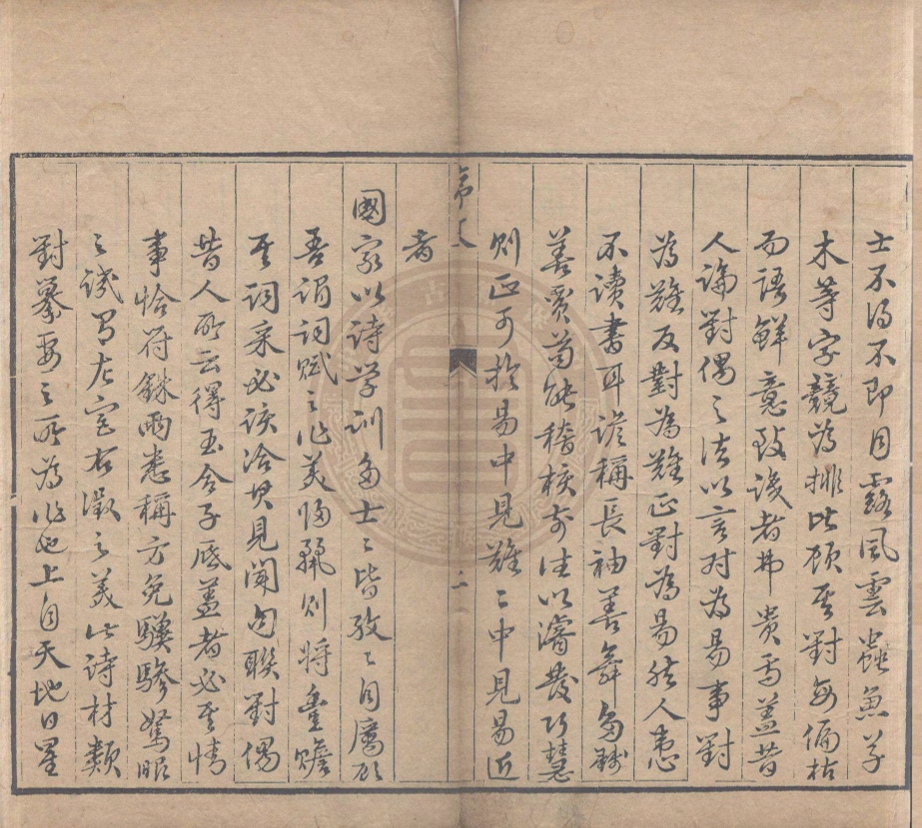 士不得不即月露風雲蟲魚草
木等字競為排比顧其對每偏枯
而語鮮意致識者弗貴焉蓋昔
人論對偶之法以言对為易事對
為難反對為難正對為易然人患
不讀書耳諺稱長袖善舞多錢
善賈苟能稽核前往以濬發巧慧
則正可於易中見難〻中見易近
者
序文
二
國家以詩学訓多士〻皆孜〻自廣所
吾謂詞賦之作美歸麗則將豊贍
其詞采必該洽其見聞句聯對偶
昔人所云得玉合子底蓋者必其情
事恰符銖兩悉稱方免驥驂駑服
之誚而有左宮右徵之美此詩材類
對纂要之所為作也上自天地日星